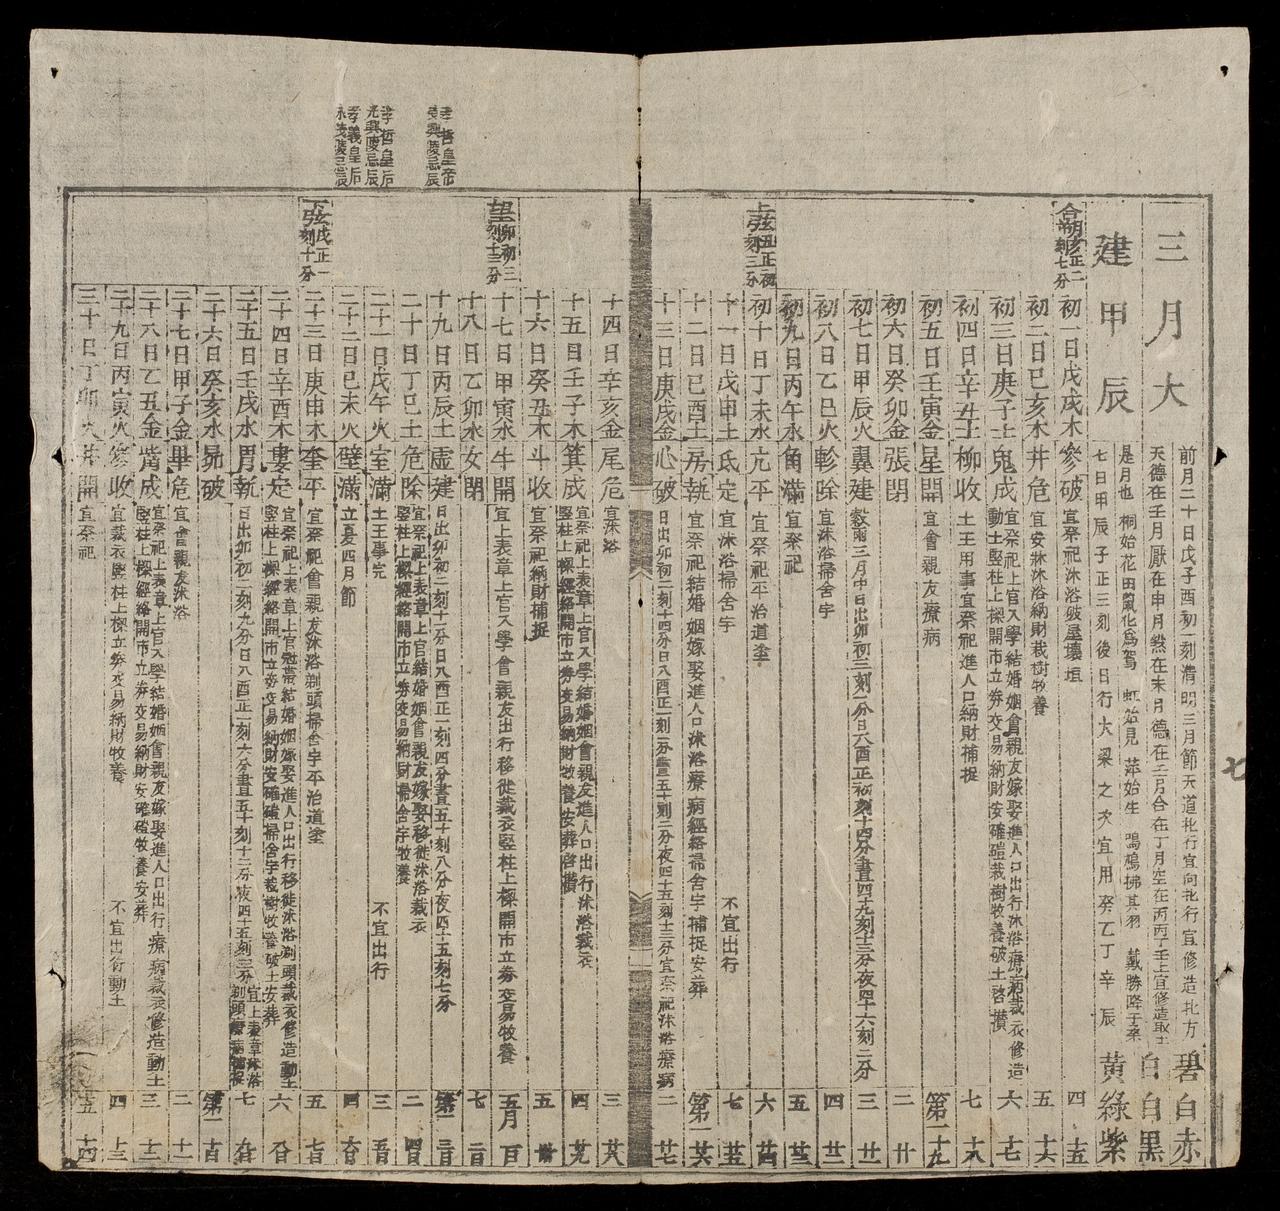 三月大
建甲辰
前月二十日戊子酉初一刻清明三月節天道北行宜向北行宜修造北方
天德在壬月厭在申月煞在未月德在壬月合在丁月空在丙丙壬上宜修造取土
是月也 桐始花田鼠化為鴽 虹始見 萍始生 鳴鳩拂其羽 戴勝降于桑
七日甲辰子正三刻後日行大梁之次宜用癸乙丁辛辰
碧白赤
白白黑
黃綠紫
合朔亥正二刻七分
初一日戊戌木參破 宜祭祀沐浴破屋壞垣 四 十五
初二日己亥木井危 宜安牀沐浴納財栽樹牧養 五 十六
初三日庚子土鬼成 宜祭祀上官入學結婚姻會親友嫁娶進人口出行沐浴療病裁衣修造動土竪柱上樑開市立券交易納財安碓磑栽樹牧養破土啓攢 六 十七
初四日辛丑土柳收 土王用事宜祭祀進人口納財補捉 七 十八
初五日壬寅金星開 宜會親友療病 第一 十九
初六日癸卯金張閉 二 廿
初七日甲辰火翼建 穀雨三月中日出卯初三刻一分日入酉正初刻十四分晝四十九刻十三分夜四十六刻二分 三 廿一
初八日乙巳火軫除 宜沐浴掃舍宇 四 廿二
初九日丙午水角滿 宜祭祀 五 廿三
上弦丑正初刻三分
初十日丁未水亢平 宜祭祀平治道塗 六 廿四
十一日戊申土氐定 宜沐浴掃舍宇 不宜出行 七 廿五
十二日己酉土房執 宜祭祀結婚姻嫁娶進人口沐浴療病經絡掃舍宇補捉安葬 第一 廿六
十三日庚戌金心破 日出卯初二刻十四分日入酉正一刻一分晝五十刻二分夜四十五刻十三分宜祭祀沐浴療病 二 廿七
十四日辛亥金尾危 宜沐浴 三 廿八
十五日壬子木箕成 宜祭祀上表章上官入學結婚姻會親友進人口出行沐浴裁衣竪柱上樑經絡開市立券交易納財牧養安葬啓攢 四 廿九
十六日癸丑木斗收 宜祭祀納財補捉 五 卅
望卯初三刻十三分
十七日甲寅水牛開 宜上表章上官入學會親友出行移徙裁衣竪柱上樑開市立券交易牧養 五月 一日
十八日乙卯水女閉 七 二日
孝哲皇帝
十九日丙辰土虛建 日出卯初二刻十一分日入酉正一刻四分晝五十刻八分夜四十五刻七分 第一 三日
二十日丁巳土危除 宜祭祀上表章上官結婚姻會親友嫁娶移徙沐浴裁衣竪柱上樑經絡開市立券交易納財掃舍宇牧養 二 四日
孝哲皇后
光興陵忌辰
二十一日戊午火室滿 土王事完 不宜出行 三 五日
孝義皇后
二十二日己未火壁滿 立夏四月節 四 六日
下弦戌正一刻十分
二十三日庚申木奎平 宜祭祀會親友沐浴剃頭掃舍宇平治道塗 五 七日
二十四日辛酉木婁定 宜祭祀上表章上官冠帶結婚姻嫁娶進人口出行移徙沐浴剃頭裁衣修造動土竪柱上樑經絡開市立券交易納財安碓磑掃舍宇栽樹牧養破土安葬 六 八日
二十五日壬戌水胃執 日出卯初二刻九分日入酉正一刻六分晝五十刻十二分夜四十五刻三分 宜上表章沐浴剃頭療病補捉 七 九日
二十六日癸亥水昴破 第一 十日
二十七日甲子金畢危 宜會親友沐浴 二 十一
二十八日乙丑金觜成 宜祭祀上表章上官入學結婚姻會親友嫁娶進人口出行療病裁衣修造動土竪柱上樑經絡開市立券交易納財安碓磑牧養安葬 三 十二
二十九日丙寅火參收 宜裁衣竪柱上樑立券交易納財牧養 不宜出行動土 四 十三
三十日丁卯火井開 宜祭祀 五 十四
七